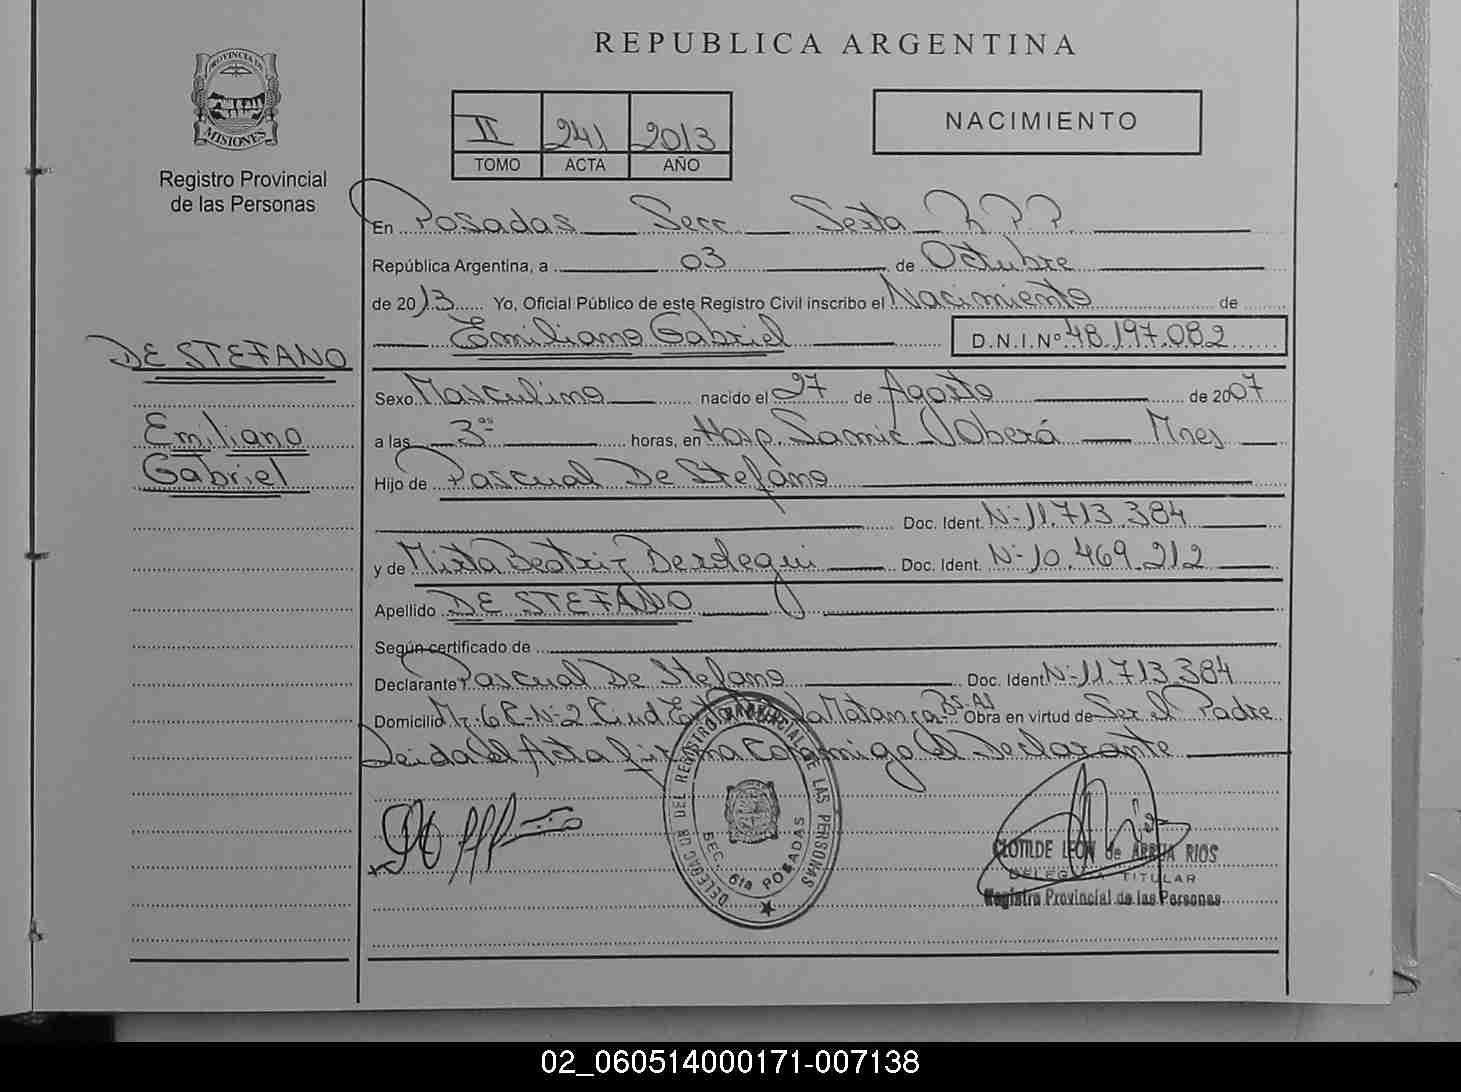 REPUBLICA ARGENTINA
PROVINCIA DE
MISIONES
Registro Provincial
de las Personas
II 241 2013
TOMO ACTA AÑO
NACIMIENTO
En Posadas Secc. Sexta R.P.P.
República Argentina, a 03 de Octubre
de 2013 Yo, Oficial Público de este Registro Civil inscribo el Nacimiento de
Emiliano Gabriel D.N.I.Nº 48.197.082
DE STEFANO
Emiliano
Gabriel
Sexo Masculino nacido el 27 de Agosto de 2007
a las 3 as horas, en Hosp. Samic Oberá Mnes
Hijo de Pascual De Stefano
Doc. Ident. Nº 11.713.384
y de Mirta Beatriz Berdegui Doc. Ident. Nº 10.469.212
Apellido DE STEFANO
Según certificado de
Declarante Pascual De Stefano Doc. Ident Nº 11.713.384
Domicilio Mz. 6 C-Nº2 Ciud. La Matanza Bs-As Obra en virtud de Ser el Padre
Leida el Acta firma conmigo el Declarante
DELEGAC DEL REGISTRO PROVINCIAL DE LAS PERSONAS
SEC. 6ta POSADAS
CLOTILDE LEON de ARRUA RIOS
DELEGADA TITULAR
Registro Provincial de las Personas
02_060514000171-007138